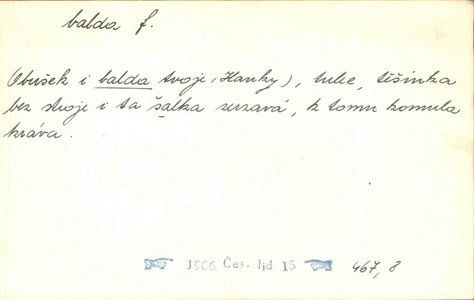 balda f.
Obušek i balda tvoje (Hanky), tulec, těšinka
bez stroje i ta šalka rezavá, k tomu komula
kráva.
1906 Čes. lid 15 467, 8